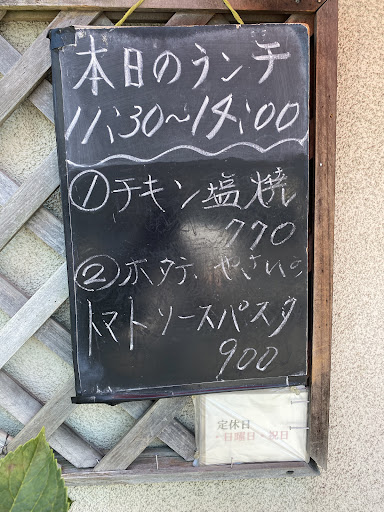 本日のランチ
11:30〜14:00
①チキン塩焼
770
②ホタテ、やさいの
トマトソースパスタ
900
定休日
・日曜日・祝日